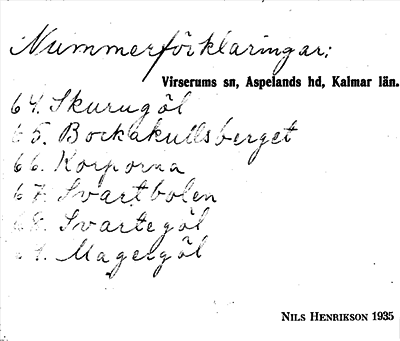 Nummerförklaringar:
Virserums sn, Aspelands hd, Kalmar län.
64. Skurugöl
65. Bockakullsberget
66. Korporna
67. Svartbolen
68. Svartegöl
69. Magesgöl
NILS HENRIKSON 1935